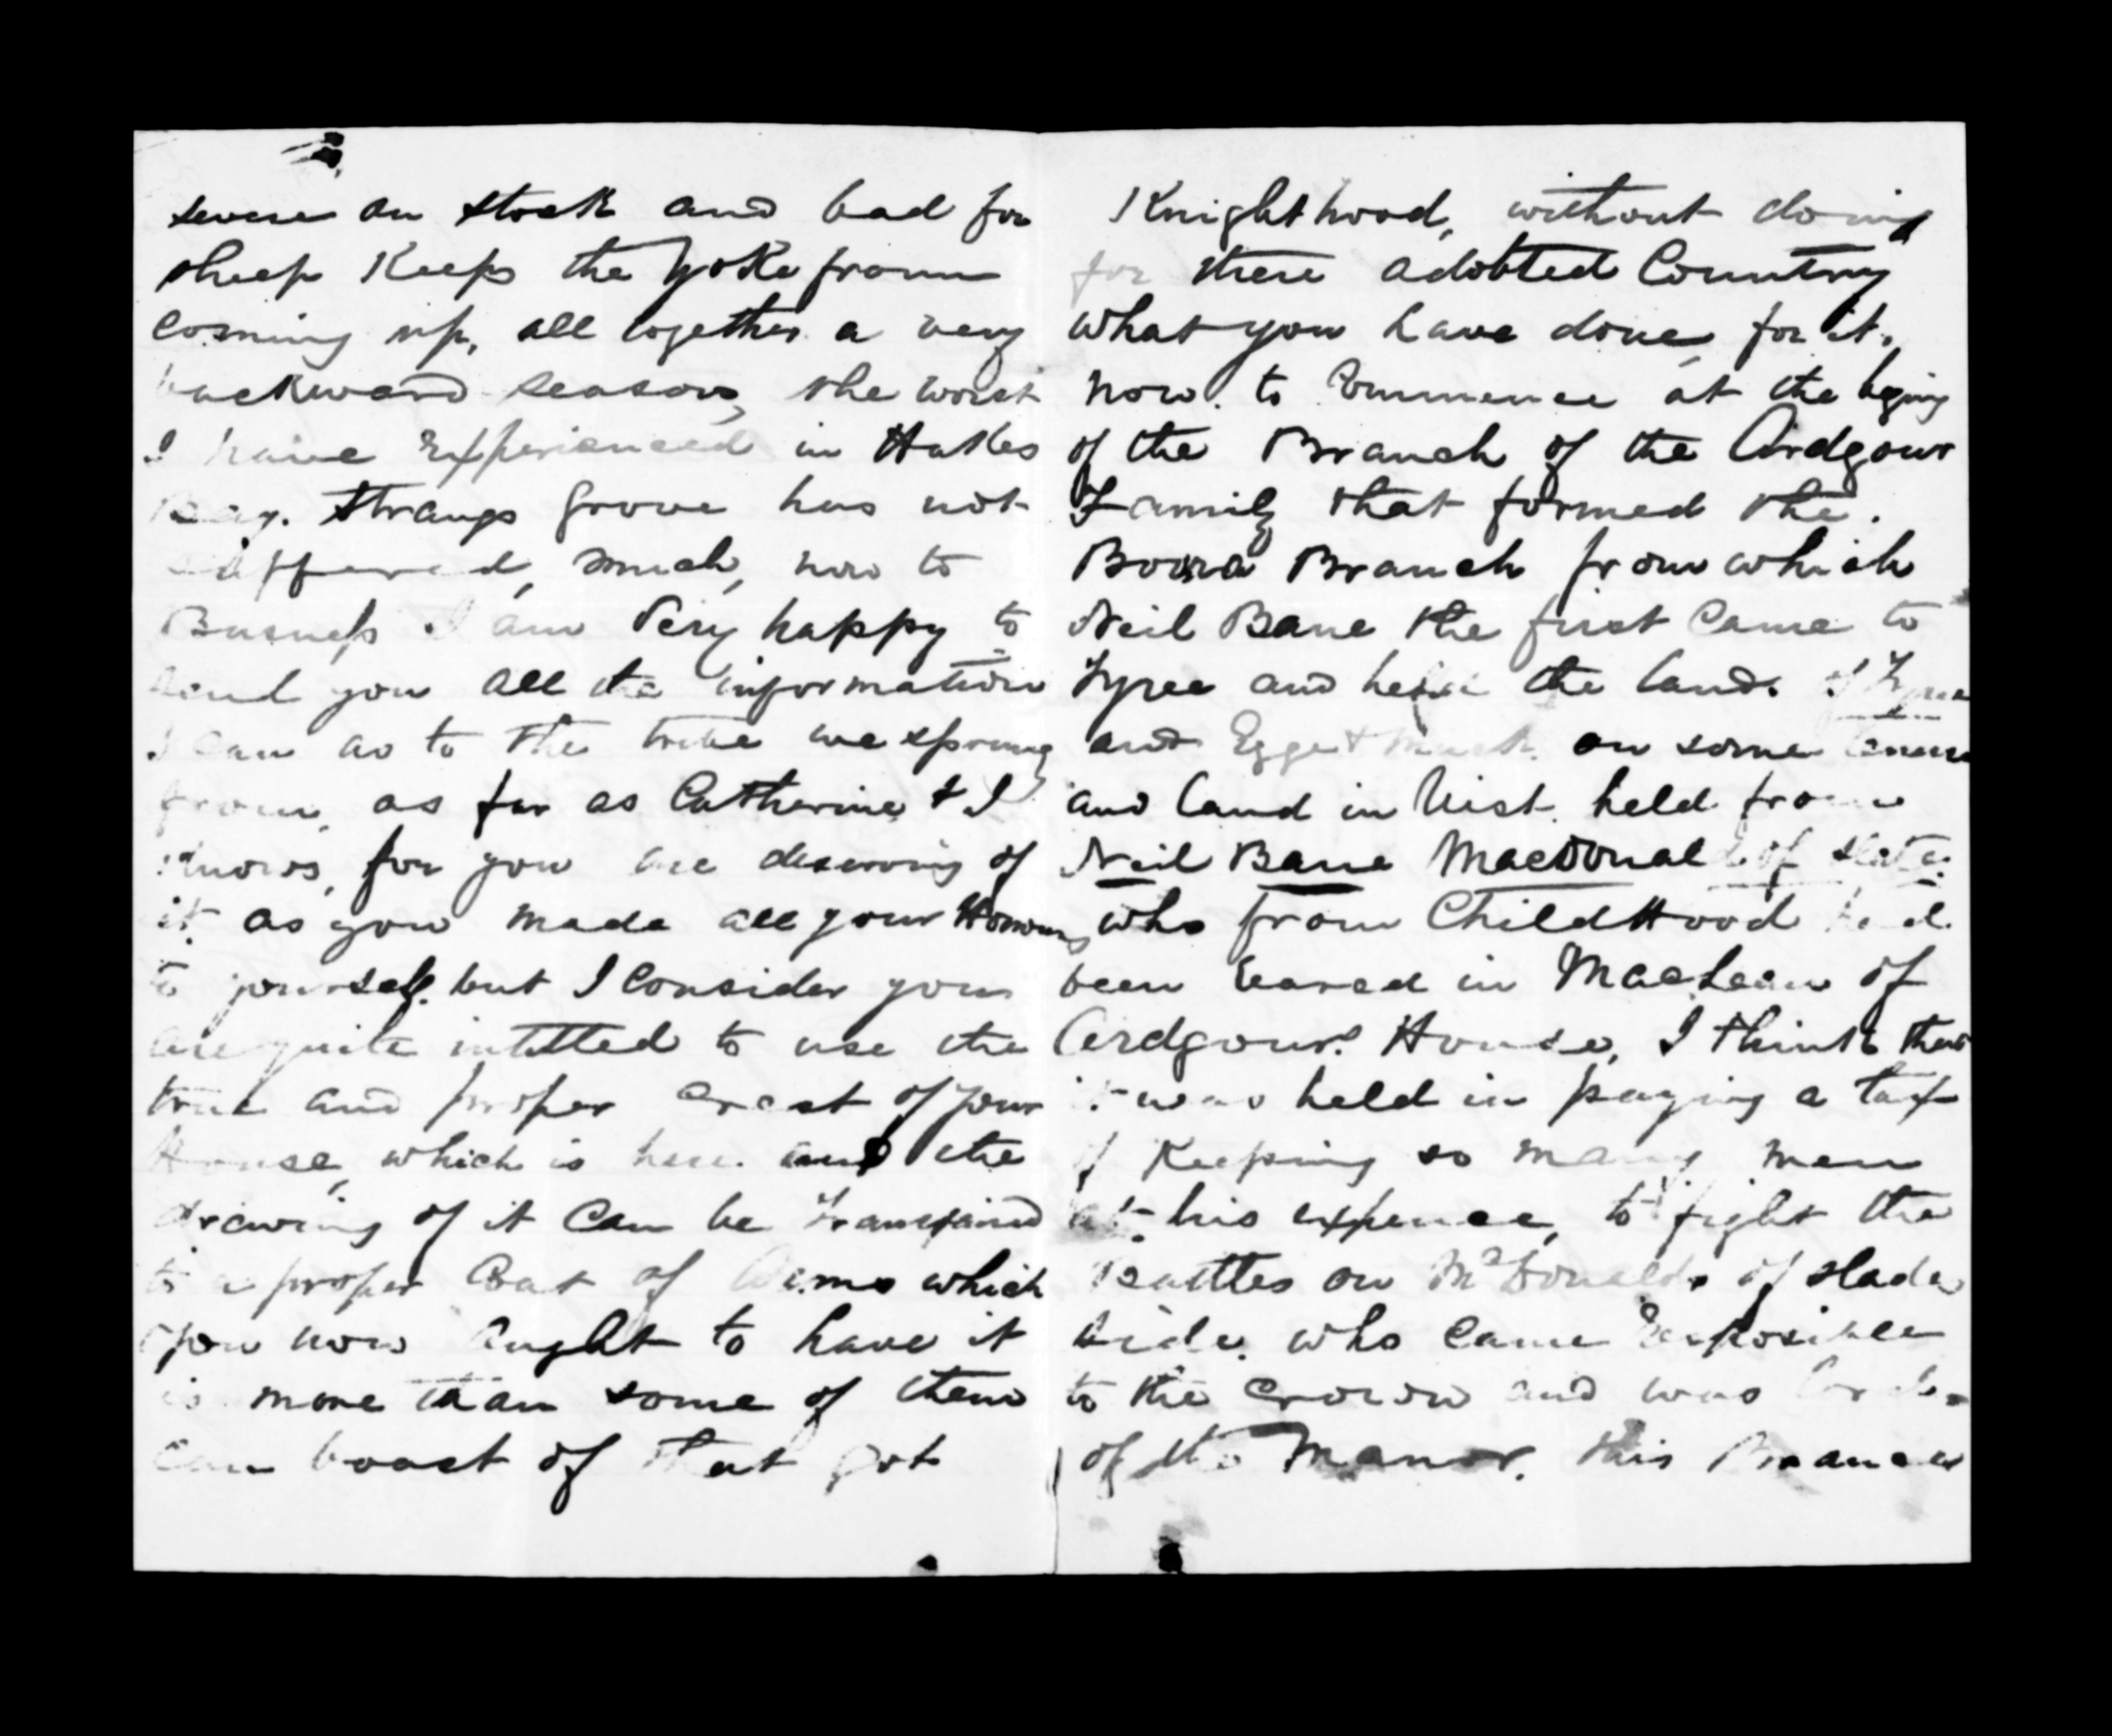 severe on stock and bad for
sheep Keeps the yoke from
coming up, all together a very
backward season, the worst
I have Experienced in Hakes
Bay. Strangs Grove has not
suffered, much, now to
Busness I am Very happy to
send you all the information
I can as to the tribe we sprung
from, as far as Catherine & I
knows, for you are deserving of
it as you made all your Honours
to yourself. but I Consider you
are quite intitted to use the
true and proper crest of your
House, which is here and the
drawing of it Can be
to a proper Coat of Arms which
you now aught to have it
is more than some of them
Can boast of that got
Knighthood, without doing
for there adobted Country
what you have done, for it.
now. to Commence at the
of the Branch of the Ardgour
Family that formed the.
Branch from which
Neil Bane the first Came to
Tyree and held the land. of Tyree
and on some
and land in Uist. held from
Neil Bane Macdonald of Slate.
who from ChildHood had
been in MacLean of
Ardgour. House, I think that
it was held in paying a tax
of Keeping so many men
at his expence, to fight the
Battles on McDonalds of Slade
side. who came
to the Crown and was
of the Manor. this Branch